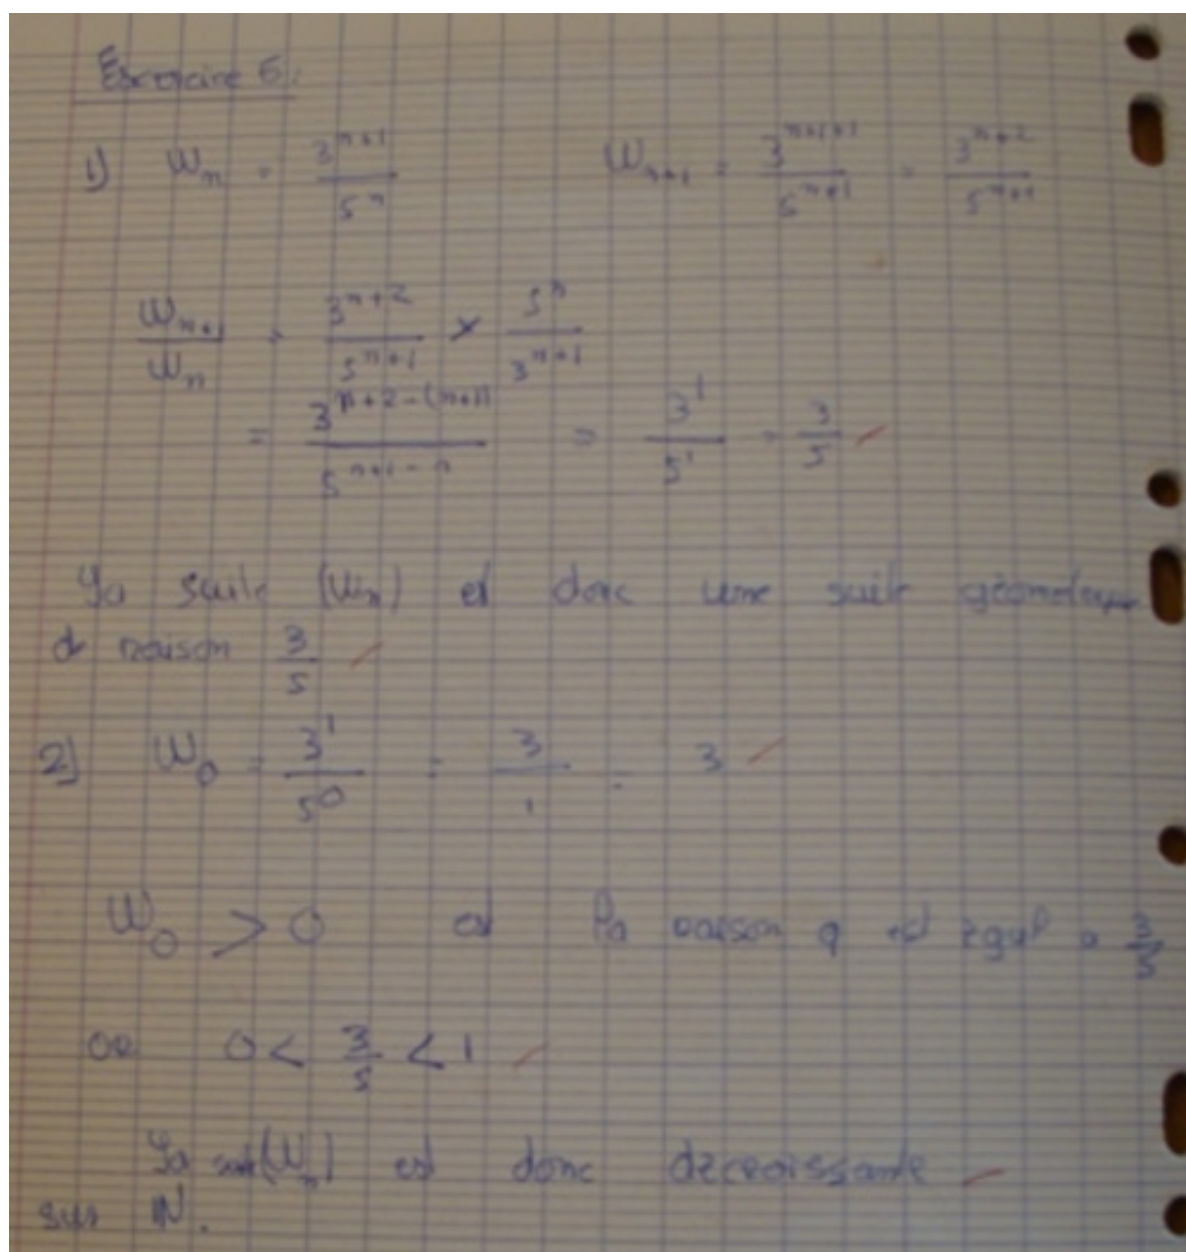 Exercice 6:
1) Wn = 3^(n+1) / 5^n    Wn+1 = 3^(n+1+1) / 5^(n+1) = 3^(n+2) / 5^(n+1)
Wn+1 / Wn = 3^(n+2) / 5^(n+1) × 5^n / 3^(n+1)
= 3^(n+2-(n+1)) / 5^(n+1-n) = 3^1 / 5^1 = 3/5
La suite (Wn) est donc une suite géométrique
de raison 3/5
2) W0 = 3^1 / 5^0 = 3/1 = 3
W0 > 0 et la raison q est égal a 3/5
or 0 < 3/5 < 1
La suite (Wn) est donc décroissante
sur ℕ.